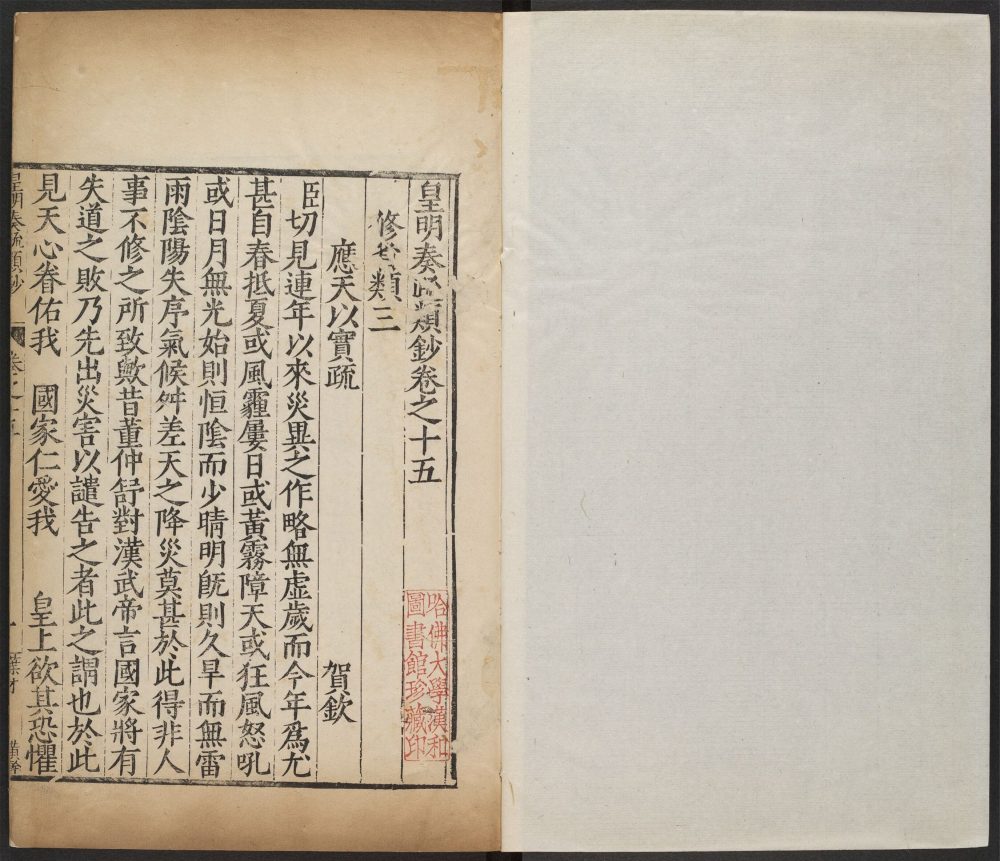 皇明奏疏類鈔卷之十五
哈佛大學漢和
圖書館珍藏印
修省類三
應天以實疏
賀欽
臣切見連年以來災異之作略無虛歲而今年爲尤
甚自春抵夏或風霾屢日或黃霧障天或狂風怒吼
或日月無光始則恒陰而少晴明旣則久旱而無雷
雨陰陽失序氣候舛差天之降災莫甚於此得非人
事不修之所致歟昔董仲舒對漢武帝言國家將有
失道之敗乃先出災害以譴告之者此之謂也於此
見天心眷佑我 國家仁愛我 皇上欲其恐懼
皇明奏疏類鈔
卷之十五
一